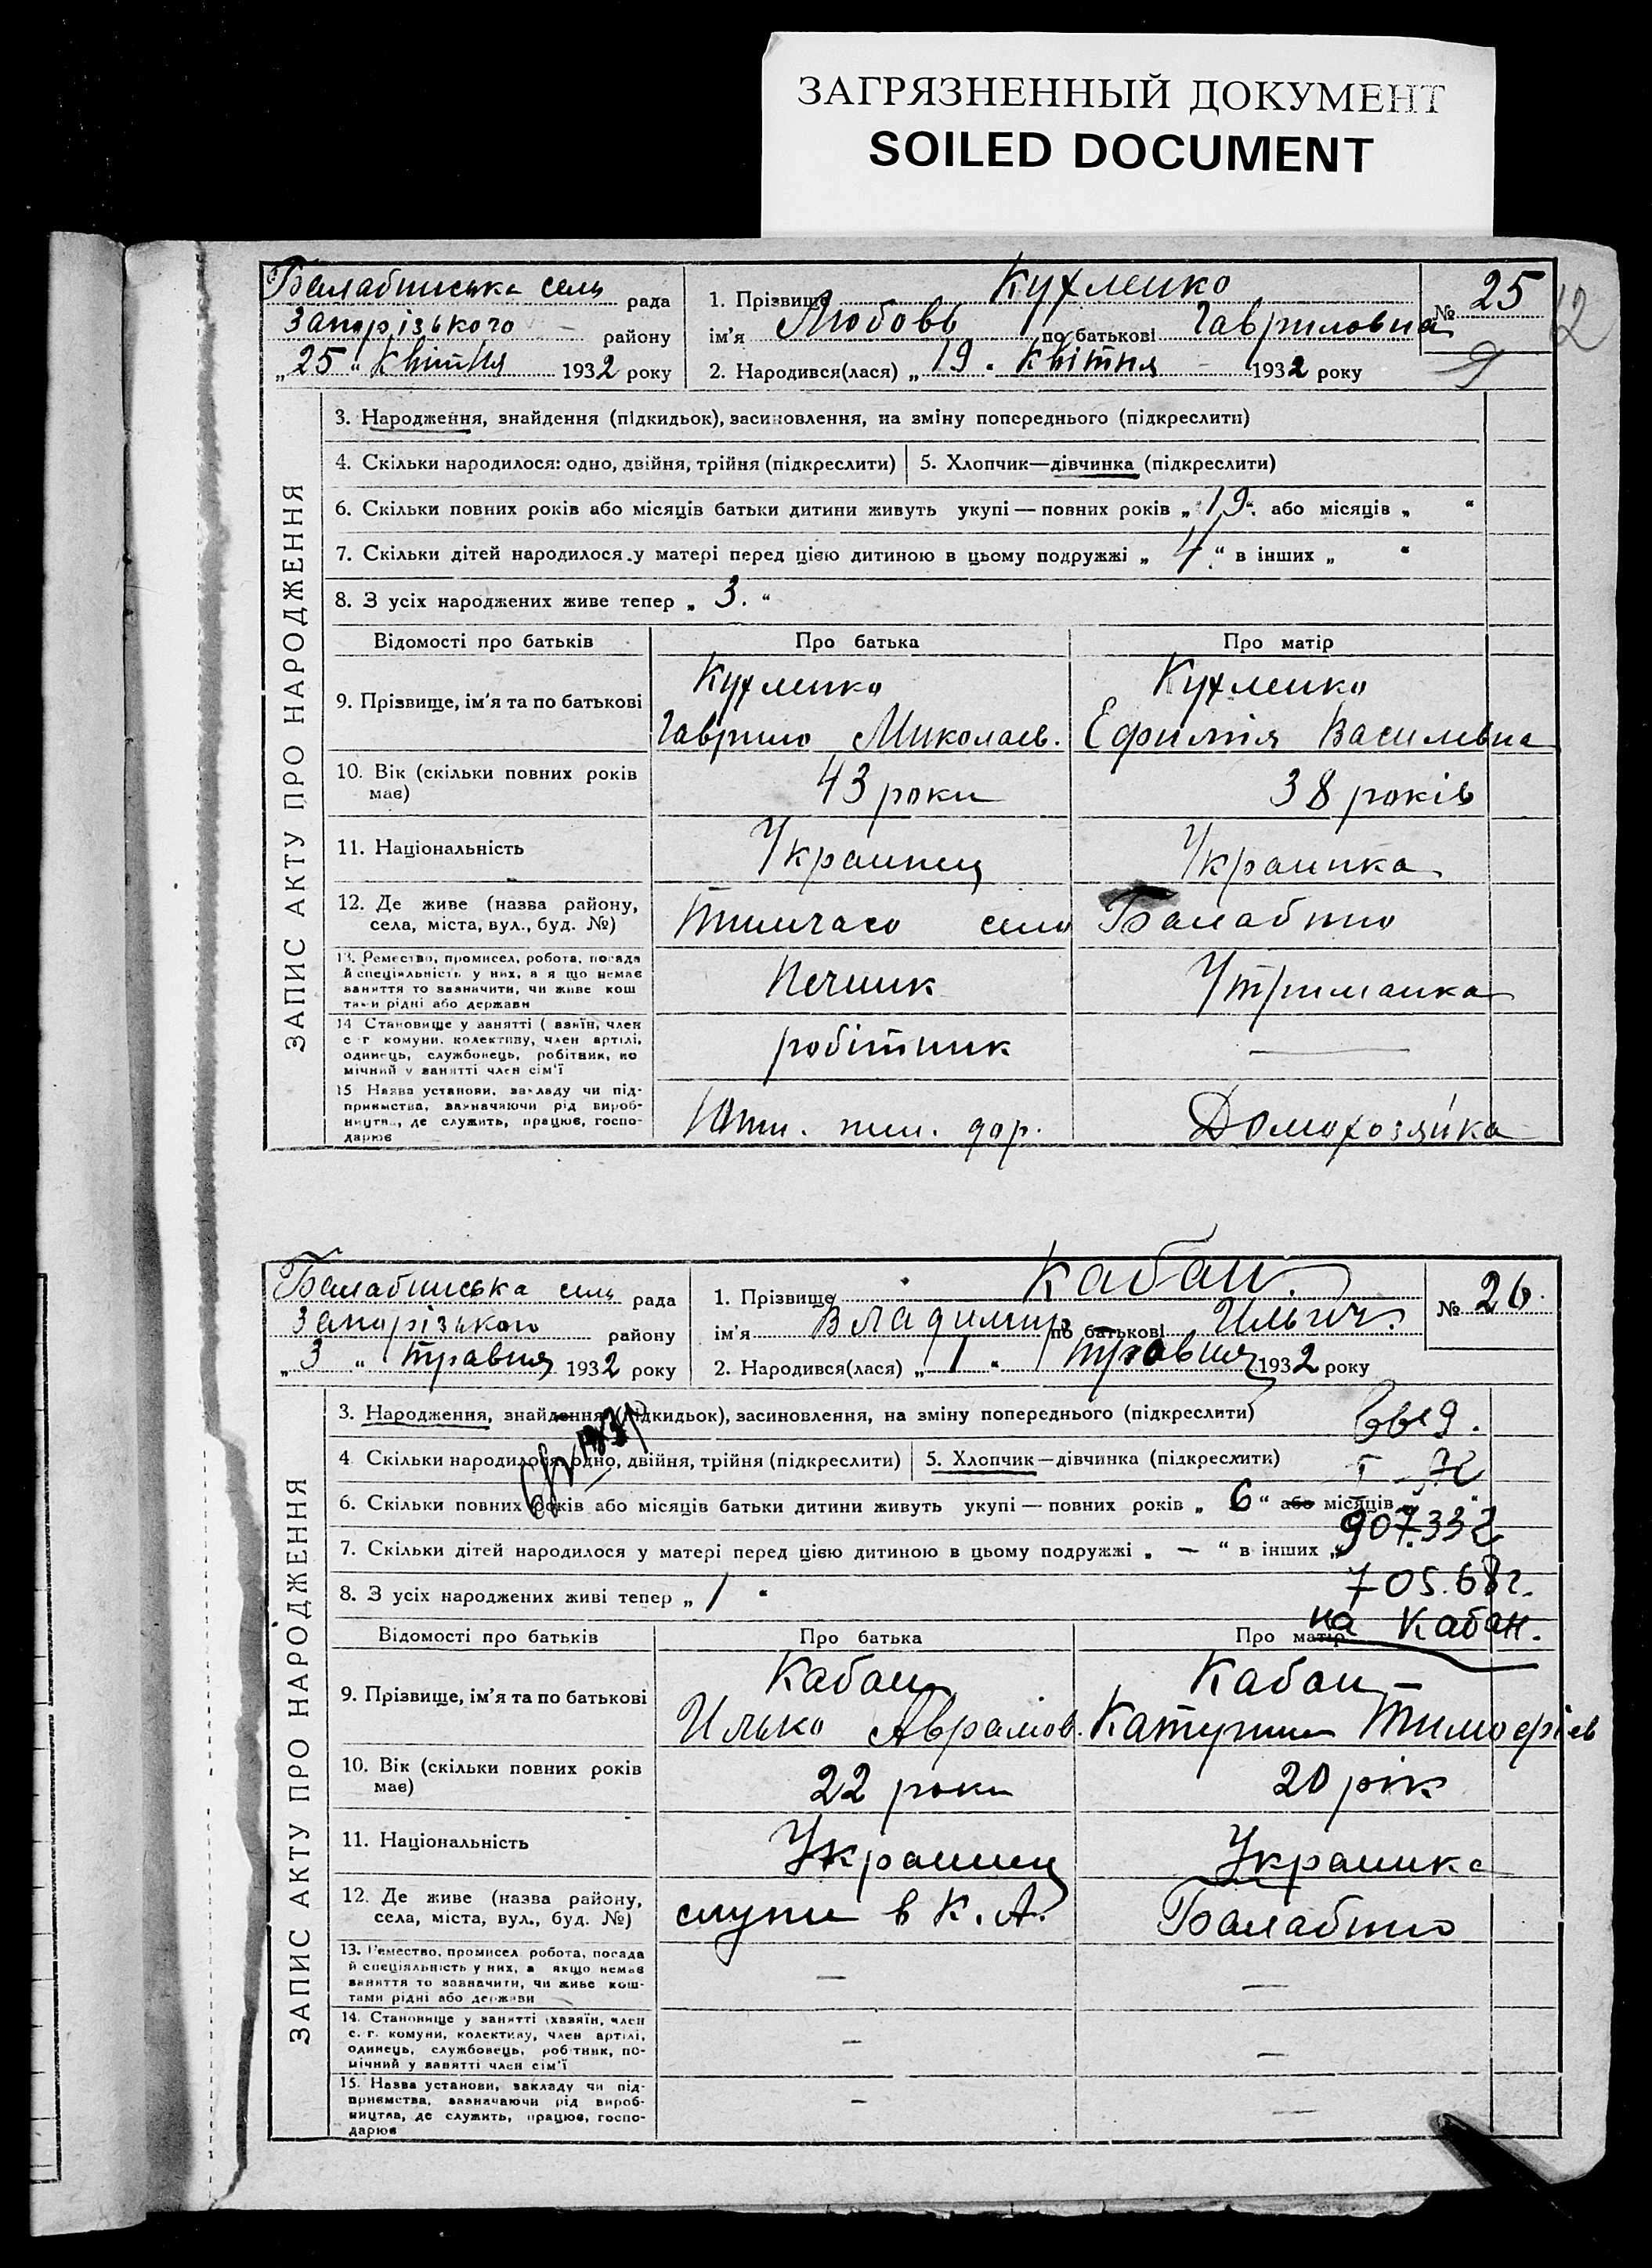 ЗАГРЯЗНЕННЫЙ ДОКУМЕНТ
SOILED DOCUMENT
Балабинська сель рада
Запорізького району
„25“ квітня 1932 року
1. Прізвище Кухленко
ім'я Любовь по батькові Гавриловна
2. Народився(лася) „19“ квітня 1932 року
№ 25
12
9
ЗАПИС АКТУ ПРО НАРОДЖЕННЯ
3. Народження, знайдення (підкидьок), засиновлення, на зміну попереднього (підкреслити)
4. Скільки народилося: одно, двійня, трійня (підкреслити) 5. Хлопчик—дівчинка (підкреслити)
6. Скільки повних років або місяців батьки дитини живуть укупі — повних років „19“ або місяців „ “
7. Скільки дітей народилося у матері перед цією дитиною в цьому подружжі „4“ в інших „ “
8. З усіх народжених живе тепер „3.“
Відомості про батьків Про батька Про матір
9. Прізвище, ім'я та по батькові
Кухленко
Гаврило Миколаєв.
Кухленко
Ефимія Василевна
10. Вік (скільки повних років має)
43 роки
38 років
11. Національність
Украинец
Украинка
12. Де живе (назва району,
села, міста, вул., буд. №)
Тимчасо село Балабино
13. Ремество, промисел, робота, посада
й спеціяльність у них, а я що немає
заняття то зазначити, чи живе кош
тами рідні або держави
Печник
Утриманка
14 Становище у занятті ( азяїн, член
с г комуни, колективу, член артілі,
одинець, службовець, робітник, по
мічний у занятті член сім'ї
робітник
—
15 Назва установи, закладу чи під-
приємства, зазначаючи рід вироб-
ництва, де служить, працює, госпо-
дарює
дор.
Домохозяйка
Балабинська сель рада
Запорізького району
„3“ травня 1932 року
1. Прізвище Кабан.
ім'я Владимир по батькові Ильич.
2. Народився(лася) „1“ травня 1932 року
№ 26.
ЗАПИС АКТУ ПРО НАРОДЖЕННЯ
3. Народження, знайдення (підкидьок), засиновлення, на зміну попереднього (підкреслити)
4 Скільки народилося: одно, двійня, трійня (підкреслити) 5. Хлопчик—дівчинка (підкреслити)
6. Скільки повних років або місяців батьки дитини живуть укупі — повних років „6“ або місяців
7. Скільки дітей народилося у матері перед цією дитиною в цьому подружжі „ — “ в інших „
907332
8. З усіх народжених живі тепер „1“
705.68г.
на Кабан.
Відомості про батьків Про батька Про матір
9. Прізвище, ім'я та по батькові
Кабан
Илько Аврамов.
Кабан
Катерина Тимофієв
10. Вік (скільки повних років має)
22 роки
20 рік
11. Національність
Украинец
Украинка
12. Де живе (назва району,
села, міста, вул., буд. №)
служе в К. А.
Балабино
13. Ремество, промисел робота, посада
й спеціяльність у них, а якщо немає
заняття то зазначити, чи живе кош-
тами рідні або держави
—
—
14. Становище у занятті (хазяїн, член
с. г. комуни, колективу, член артілі,
одинець, службовець, робітник, по-
мічний у занятті член сім'ї
—
—
15. Назва установи, закладу чи під-
приємства, зазначаючи рід вироб-
ництва, де служить, працює, госпо-
дарює
—
—